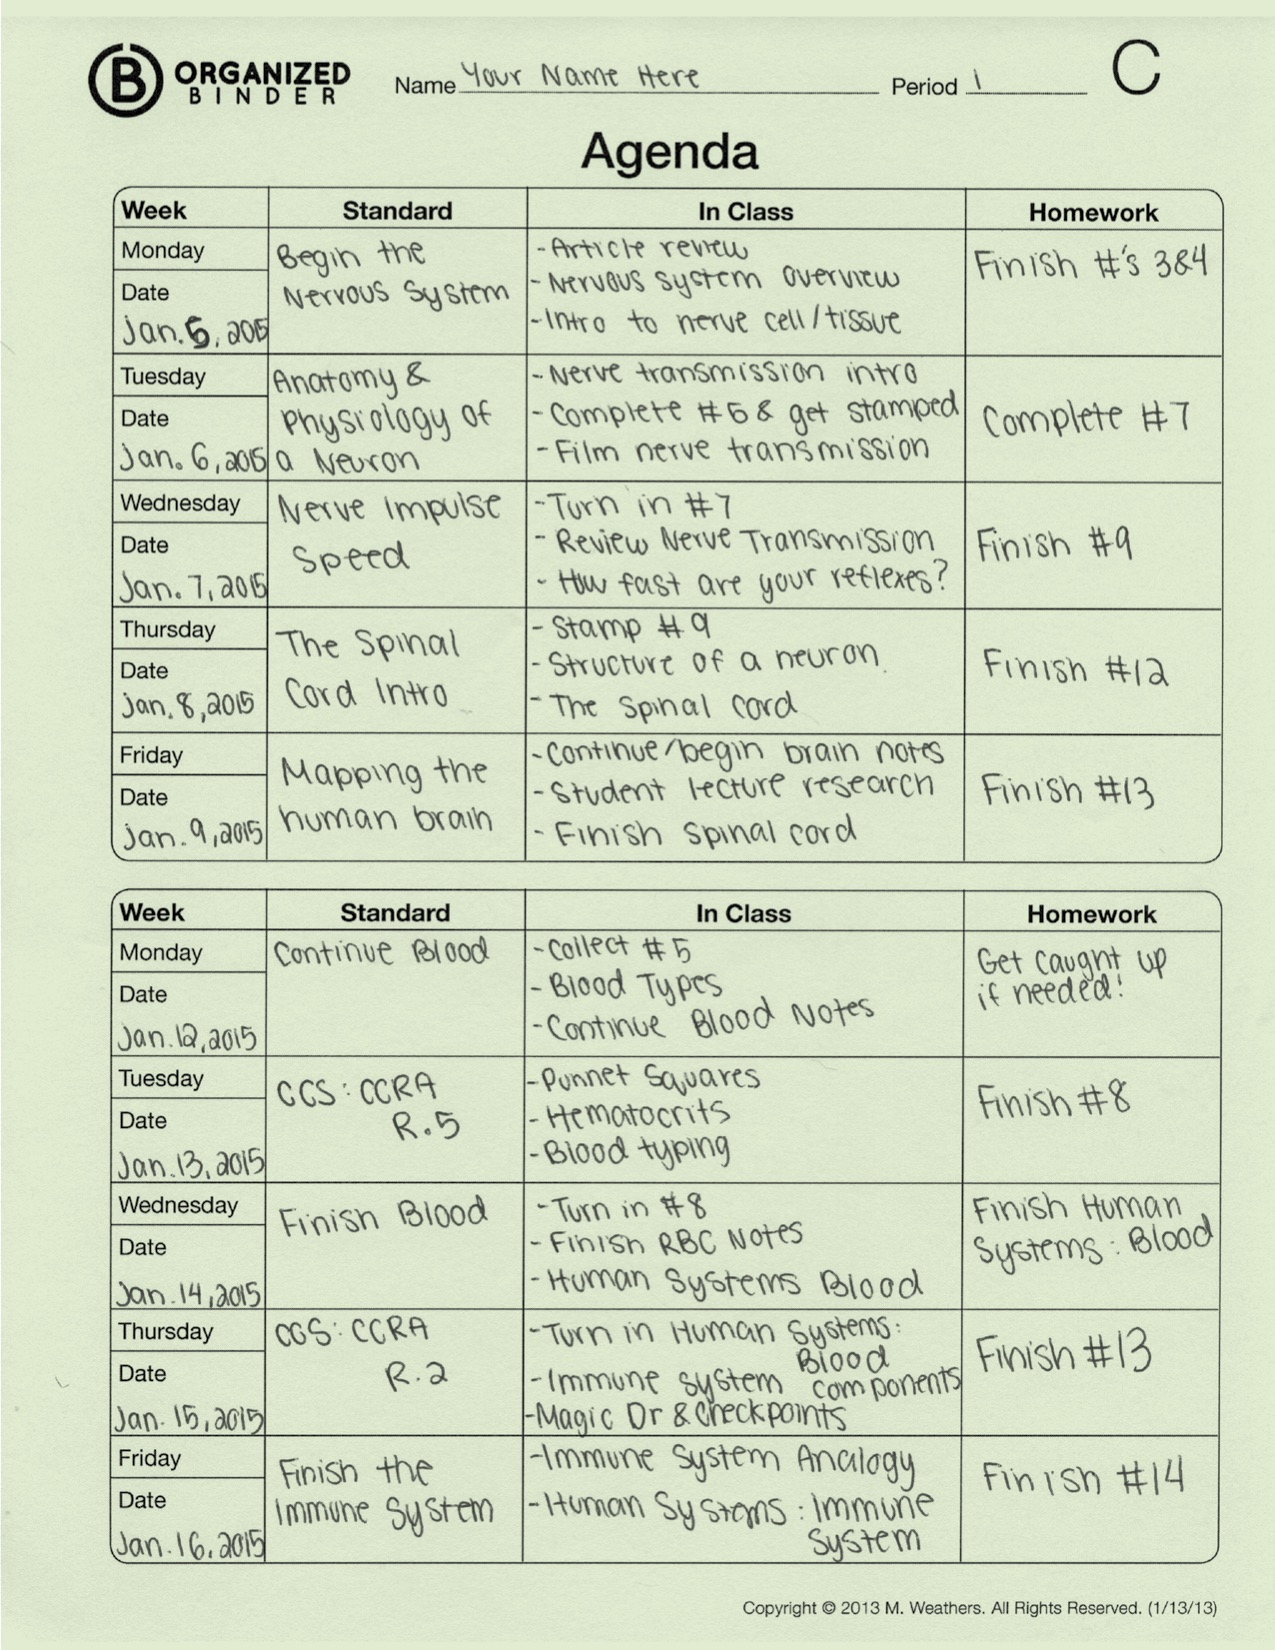 B ORGANIZED
BINDER
Name Your Name Here Period 1 C
Agenda
Week Standard In Class Homework
Monday
Date
Jan. 5, 2015
Begin the
Nervous System
- Article review
- Nervous system overview
- Intro to nerve cell/tissue
Finish #'s 3&4
Tuesday
Date
Jan. 6, 2015
Anatomy &
Physiology of
a Neuron
- Nerve transmission intro
- Complete #6 & get stamped
- Film nerve transmission
Complete #7
Wednesday
Date
Jan. 7, 2015
Nerve Impulse
Speed
- Turn in #7
- Review Nerve Transmission
- How fast are your reflexes?
Finish #9
Thursday
Date
Jan. 8, 2015
The Spinal
Cord Intro
- Stamp #9
- Structure of a neuron
- The Spinal cord
Finish #12
Friday
Date
Jan. 9, 2015
Mapping the
human brain
- Continue/begin brain notes
- Student lecture research
- Finish Spinal cord
Finish #13
Week Standard In Class Homework
Monday
Date
Jan. 12, 2015
Continue Blood
- Collect #5
- Blood Types
- Continue Blood Notes
Get caught up
if needed!
Tuesday
Date
Jan. 13, 2015
CCS: CCRA
R.5
- Punnet Squares
- Hematocrits
- Blood typing
Finish #8
Wednesday
Date
Jan. 14, 2015
Finish Blood
- Turn in #8
- Finish RBC Notes
- Human Systems Blood
Finish Human
Systems: Blood
Thursday
Date
Jan. 15, 2015
CCS: CCRA
R.2
- Turn in Human Systems:
Blood
- Immune system components
- Magic Dr & Checkpoints
Finish #13
Friday
Date
Jan. 16, 2015
Finish the
Immune System
- Immune System Analogy
- Human Systems: Immune
System
Finish #14
Copyright © 2013 M. Weathers. All Rights Reserved. (1/13/13)